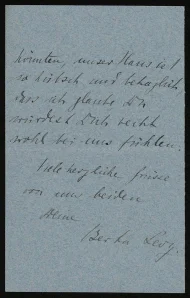 könnten, unser Haus ist
so hübsch und behaglich,
dass ich glaube Du
würdest Dich recht
wohl bei uns fühlen.
Viele herzliche Grüsse
von uns beiden
Deine
Bertha Levy.